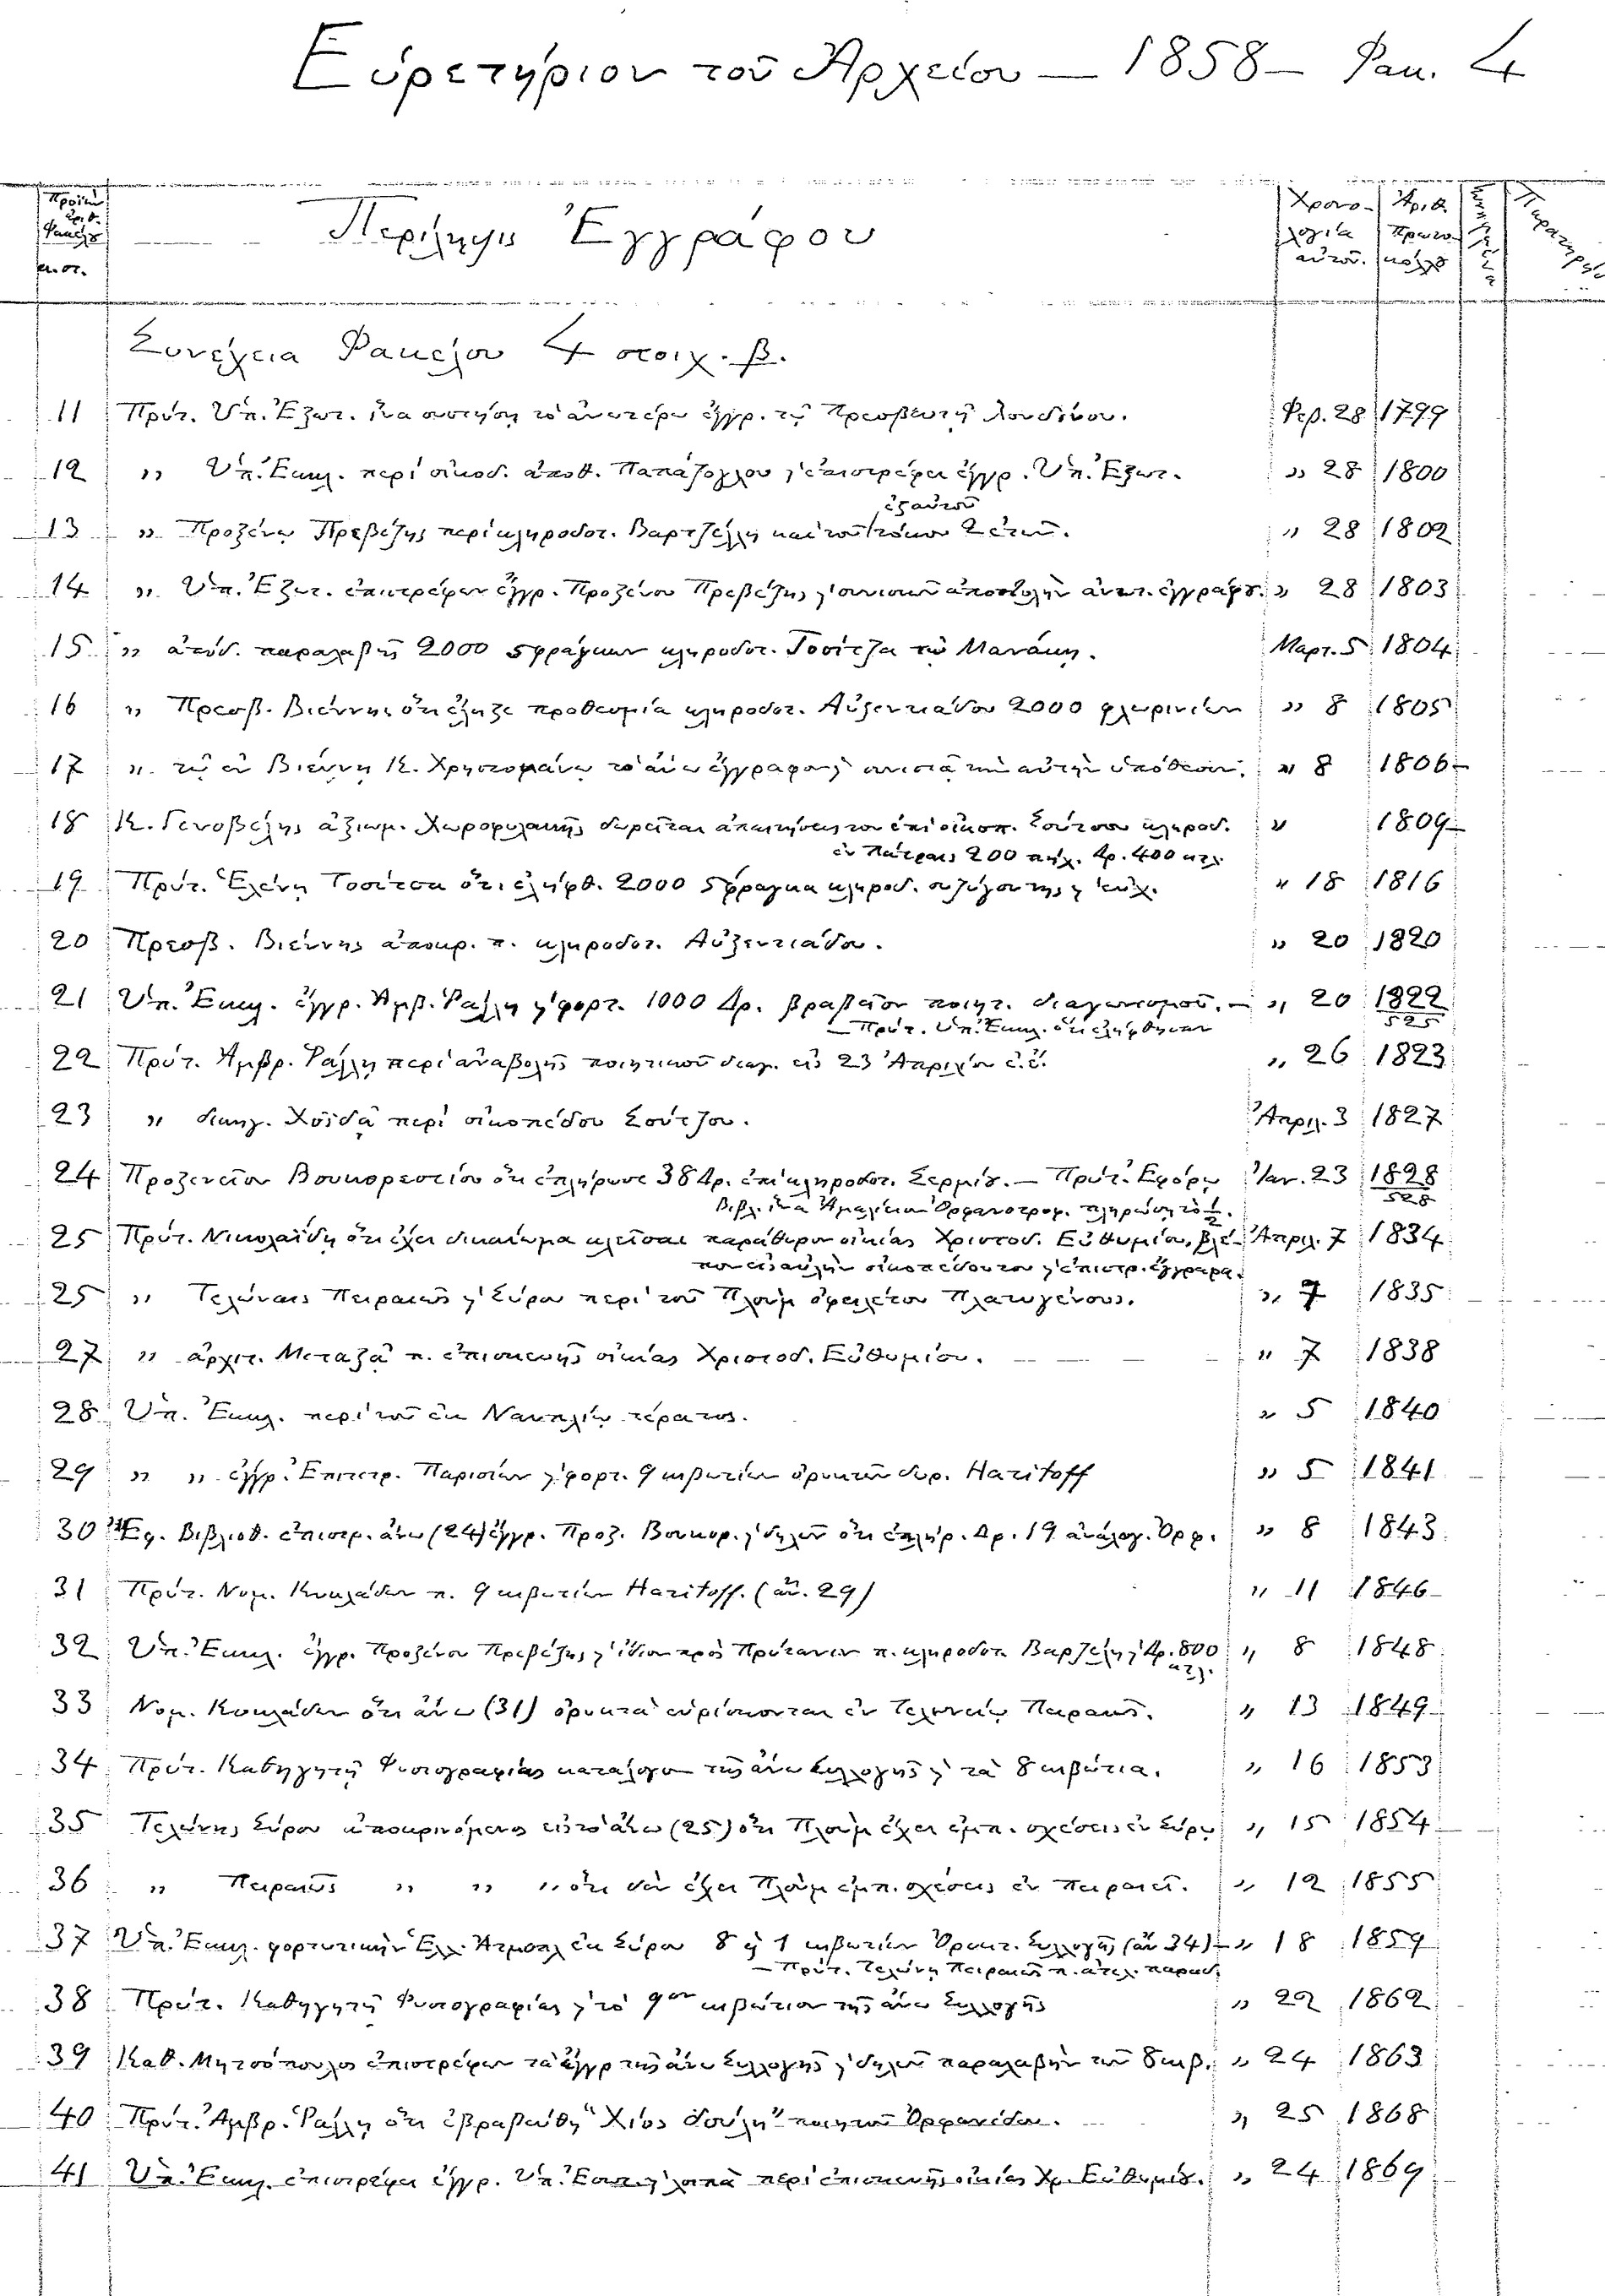 Εὑρετήριον τοῦ Ἀρχείου — 1858 — Φακ. 4
Περίληψις Ἐγγράφου
Χρονο- Ἀριθ.
λογία Πρωτο-
αὐτοῦ. κόλλου
Συνέχεια Φακέλου 4 στοιχ. β.
11 Πρύτ. Ὑπ. Ἐξωτ. ἵνα συστήσῃ τὸ ἀνωτέρω ἔγγρ. τῷ Πρεσβευτῇ Λονδίνου. Φεβ. 28 1799
12 " Ὑπ. Ἐκκλ. περὶ οἰκοδ. ἀποθ. Παπάζογλου ἐπιστρέφει ἔγγρ. Ὑπ. Ἐξωτ. " 28 1800
ἐξ αὐτοῦ
13 " Προξένῳ Πρεβέζης περὶ κληροδοτ. Βαρτζέλη καὶ τοῦ τόκου 2 ἐτῶν. " 28 1802
14 " Ὑπ. Ἐξωτ. ἐπιστρέφων ἔγγρ. Προξένου Πρεβέζης συνιστῶν ἀποστολὴν ἀνωτ. ἐγγράφου. " 28 1803
15 " ἀπόδ. παραλαβῆς 2000 σφραγίκων κληροδοτ. Τοσίτζα τῷ Μανάκῃ. Μαρτ. 5 1804
16 " Πρεσβ. Βιέννης ὅτι ἔληξε προθεσμία κληροδοτ. Αὐξεντιάδου 2000 φλωρινίων " 8 1805
17 " τῷ ἐν Βιέννῃ Κ. Χρηστομάνῳ τὸ ἄνω ἔγγραφον συνιστᾷ τὴν αὐτὴν ὑπόθεσιν. " 8 1806
18 Κ. Γενοβέλης ἀξιωμ. Χωροφυλακῆς δωρεῖται ἀπαιτήσεις του ἐπὶ οἰκοπ. Σούτσου κληροδ. " 1809
ἐν Πάτραις 200 πήχ. δρ. 400 κτλ.
19 Πρύτ. Ἑλένῃ Τοσίτσα ὅτι ἐλήφθ. 2000 σφραγικα κληροδ. συζύγου της " 18 1816
20 Πρεσβ. Βιέννης ἀποκρ. π. κληροδοτ. Αὐξεντιάδου. " 20 1820
21 Ὑπ. Ἐκκλ. ἔγγρ. Ἀμβ. Ράλλη φορτ. 1000 Δρ. βραβεῖον ποιητ. διαγωνισμοῦ. — " 20 1822
— Πρύτ. Ὑπ. Ἐκκλ. ὅτι ἐλήφθησαν 525
22 Πρύτ. Ἀμβρ. Ράλλη περὶ ἀναβολῆς ποιητικοῦ διαγ. εἰς 23 Ἀπριλίου ἐ.ἔ. " 26 1823
23 " δικηγ. Χοϊδᾷ περὶ οἰκοπέδου Σούτζου. Ἀπριλ. 3 1827
24 Προξενεῖον Βουκορεστίου ὅτι ἐπλήρωσε 38 δρ. ἐπὶ κληροδοτ. Σερμίδ. — Πρύτ. Ἐφόρῳ Ἰαν. 23 1828
Βιβλ. ἵνα Ἀμαλίειον Ὀρφανοτροφ. πληρώσῃ τὸ ½. 528
25 Πρύτ. Νικολαΐδῃ ὅτι ἔχει δικαίωμα κλεῖσαι παράθυρα οἰκίας Χριστοδ. Εὐθυμίου, βλέ- Ἀπριλ. 7 1834
που εἰς αὐλὴν οἰκοπέδου του ἐπιστρ. ἔγγραφα.
25 " Τελώναις Πειραιῶς Σύρου περὶ τοῦ Πλοὺμ ὀφειλέτου Πλατυγένους. " 7 1835
27 " ἀρχιτ. Μεταξᾷ π. ἐπισκευῆς οἰκίας Χριστοδ. Εὐθυμίου. " 7 1838
28 Ὑπ. Ἐκκλ. περὶ τοῦ ἐν Ναυπλίῳ τέρατος. " 5 1840
29 " " ἔγγρ. Ἐπιτετρ. Παρισίων φορτ. 9 κιβωτίων ὀρυκτῶν δωρ. Haritoff " 5 1841
30 Ἔφ. Βιβλιοθ. ἐπιστρ. ἄνω (24) ἔγγρ. Προξ. Βουκορ. δηλῶν ὅτι ἐπληρ. Δρ. 19 ἀνάλογ. Ὀρφ. " 8 1843
31 Πρύτ. Νομ. Κυκλάδων π. 9 κιβωτίων Haritoff. (ἄν. 29) " 11 1846
32 Ὑπ. Ἐκκλ. ἔγγρ. Προξένου Πρεβέζης ἴδιον πρὸς Πρύτανιν π. κληροδοτ. Βαρζέλη Δρ. 800 " 8 1848
κτλ.
33 Νομ. Κυκλάδων ὅτι ἄνω (31) ὀρυκτὰ εὑρίσκονται ἐν Τελωνείῳ Πειραιῶς. " 13 1849
34 Πρύτ. Καθηγητῇ Φυσιογραφίας κατάλογον τῆς ἄνω Συλλογῆς τὰ 8 κιβώτια. " 16 1853
35 Τελώνης Σύρου ἀποκρινόμενος εἰς τὸ ἄνω (25) ὅτι Πλοὺμ ἔχει ἐμπ. σχέσεις ἐν Σύρῳ " 15 1854
36 " Πειραιῶς " " " ὅτι δὲν ἔχει Πλοὺμ ἐμπ. σχέσεις ἐν Πειραιεῖ. " 12 1855
37 Ὑπ. Ἐκκλ. φορτωτικὴν Ἑλλ. Ἀτμοπλ. ἐκ Σύρου 8 ἢ 1 κιβωτίων Ὀρυκτ. Συλλογῆς (ἄν 34) — " 18 1859
— Πρύτ. Τελώνῃ Πειραιῶς π. ἀτελ. παραδ.
38 Πρύτ. Καθηγητῇ Φυσιογραφίας τὸ 9ον κιβώτιον τῆς ἄνω Συλλογῆς " 22 1862
39 Καθ. Μητσόπουλος ἐπιστρέφων τὰ ἔγγρ τῆς ἄνω Συλλογῆς δηλοῖ παραλαβὴν τῶν 8 κιβ. " 24 1863
40 Πρύτ. Ἀμβρ. Ράλλη ὅτι ἐβραβεύθη "Χίος δούλη" ποιητοῦ Ὀρφανίδου. " 25 1868
41 Ὑπ. Ἐκκλ. ἐπιστρέφει ἔγγρ. Ὑπ. Ἐσωτ. περὶ ἐπισκευῆς οἰκίας Χρ. Εὐθυμίου. " 24 1869